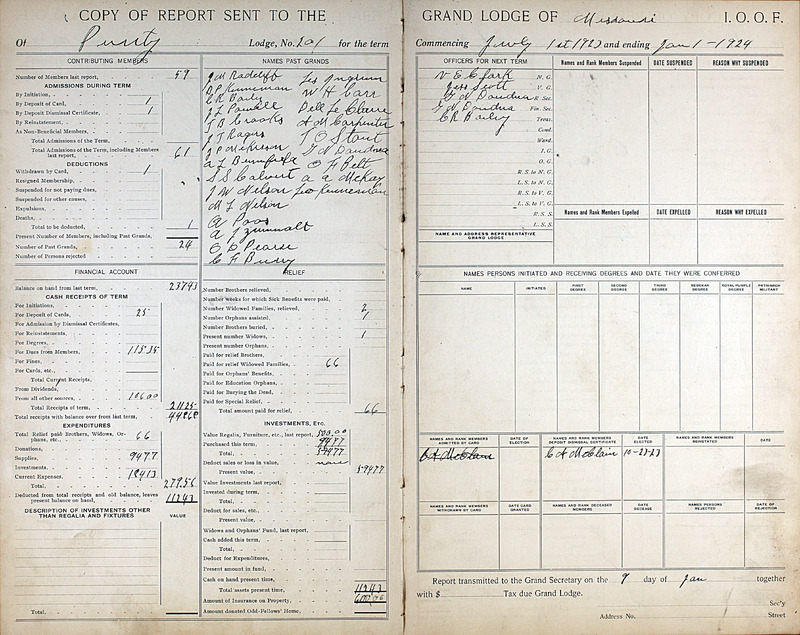 COPY OF REPORT SENT TO THE
Of Purity Lodge, No. 201 for the term
CONTRIBUTING MEMBERS
Number of Members last report, 59
ADMISSIONS DURING TERM
By Initiation,
By Deposit of Card, 1
By Deposit Dismissal Certificate, 1
By Reinstatement,
As Non-Beneficial Members,
Total Admissions of the Term,
Total Admissions of the Term, including Members last report, 61
DEDUCTIONS
Withdrawn by Card, 1
Resigned Membership,
Suspended for not paying dues,
Suspended for other causes,
Expulsions,
Deaths,
Total to be deducted, 1
Present Number of Members, including Past Grands,
Number of Past Grands, 24
Number of Persons rejected
NAMES PAST GRANDS
J M Radcliff
W H Carr
C R Baily
J L Powell Dell Le Claire
J B Crooks A M Carpenter
J T Rogers T O Stout
J P McKeson G N Daudna
A L Bumfield O F Belt
S S Calvert A A McKay
J W Nelson Leo Kunneman
M L Nelson
A Poos
A J Zumwalt
O C Pearse
C F Busey
FINANCIAL ACCOUNT
Balance on hand from last term, 23743
CASH RECEIPTS OF TERM
For Initiations,
For Deposit of Cards, 25
For Admission by Dismissal Certificates,
For Reinstatements,
For Degrees,
For Dues from Members, 11535
For Fines,
For Cards, etc.,
Total Current Receipts,
From Dividends,
From all other sources, 10600
Total Receipts of term, 21125
Total receipts with balance over from last term, 44868
EXPENDITURES
Total Relief paid Brothers, Widows, Orphans, etc., 66
Donations,
Supplies, 9477
Investments,
Current Expenses, 18413
Total, 27956
Deducted from total receipts and old balance, leaves present balance on hand, 11243
DESCRIPTION OF INVESTMENTS OTHER THAN REGALIA AND FIXTURES
VALUE
Total,
RELIEF
Number Brothers relieved,
Number weeks for which Sick Benefits were paid,
Number Widowed Families, relieved, 2
Number Orphans assisted, 1
Number Brothers buried,
Present number Widows, 1
Present number Orphans,
Paid for relief Brothers,
Paid for relief Widowed Families, 66
Paid for Orphans' Benefits,
Paid for Education Orphans,
Paid for Burying the Dead,
Paid for Special Relief,
Total amount paid for relief, 66
INVESTMENTS, Etc.
Value Regalia, Furniture, etc., last report, 500.00
Purchased this term, 9477
Total, 59477
Deduct sales or loss in value, none
Present value, 59477
Value Investments last report,
Invested during term,
Total,
Deduct for sales, etc.,
Present value,
Widows and Orphans' Fund, last report,
Cash added this term,
Total,
Deduct for Expenditures,
Present amount in fund,
Cash on hand present time,
Total assets present time,
Amount of Insurance on Property, 600.00
Amount donated Odd-Fellows' Home,
GRAND LODGE OF Missouri I. O. O. F.
Commencing July 1st 1923 and ending Jan 1 - 1924
OFFICERS FOR NEXT TERM
V E Clark N. G.
Jess Scott V. G.
G N Daudna R. Sec.
G N Daudna Fin. Sec.
C R Baily Treas.
Cond.
Ward.
I. G.
O. G.
R. S. to N. G.
L. S. to N. G.
R. S. to V. G.
L. S. to V. G.
R. S. S.
L. S. S.
NAME AND ADDRESS REPRESENTATIVE GRAND LODGE
Names and Rank Members Suspended
DATE SUSPENDED
REASON WHY SUSPENDED
Names and Rank Members Expelled
DATE EXPELLED
REASON WHY EXPELLED
NAMES PERSONS INITIATED AND RECEIVING DEGREES AND DATE THEY WERE CONFERRED
NAME INITIATED FIRST DEGREE SECOND DEGREE THIRD DEGREE REBEKAH DEGREE ROYAL PURPLE DEGREE PATRIARCH MILITANT
NAMES AND RANK MEMBERS ADMITTED BY CARD
DATE OF ELECTION
NAMES AND RANK MEMBERS DEPOSIT DISMISSAL CERTIFICATE
DATE ELECTED
NAMES AND RANK MEMBERS REINSTATED
DATE
C A McClain C A McClain 10-23-23
NAMES AND RANK MEMBERS WITHDRAWN BY CARD
DATE CARD GRANTED
NAMES AND RANK DECEASED MEMBERS
DATE DECEASE
NAMES PERSONS REJECTED
DATE OF REJECTION
Report transmitted to the Grand Secretary on the 9 day of Jan together
with $ Tax due Grand Lodge.
Sec'y
Address No. Street